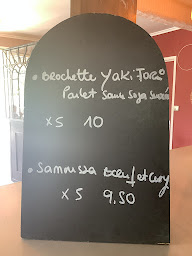 • Brochette Yaki Tori
Poulet Sauce Soja Sucrée
x5 10
• Samoussa Boeuf et Curry
x5 9,50